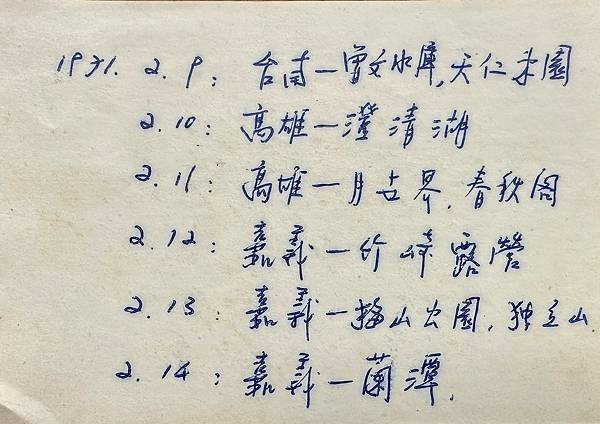 1971. 2. 9: 台南—曾文水庫, 天仁乐園
2. 10: 高雄—澄清湖
2. 11: 高雄—月世界, 春秋阁
2. 12: 嘉義—竹崎露營
2. 13: 嘉義—梅山公園, 独立山
2. 14: 嘉義—蘭潭.